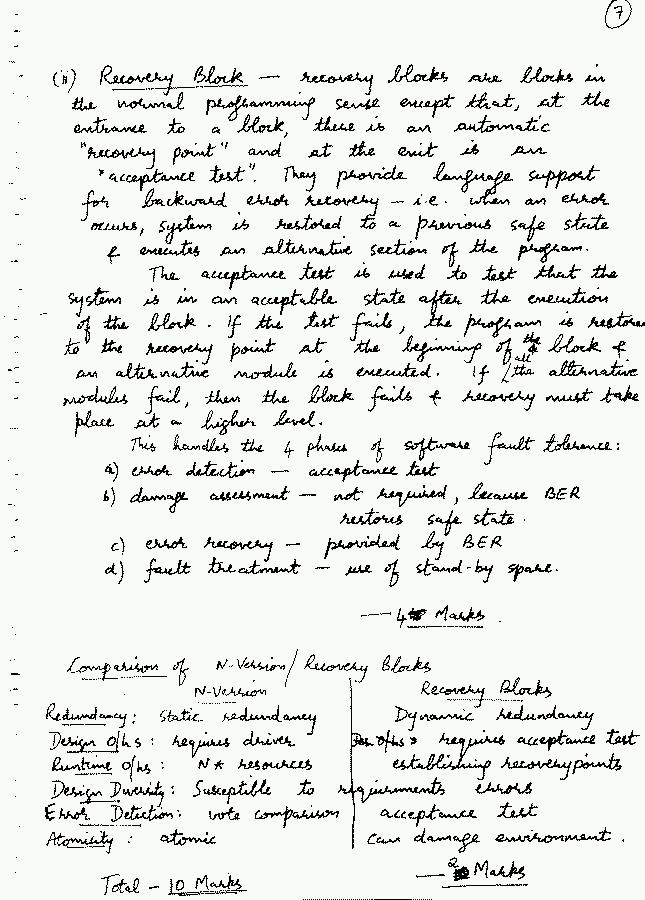 7
(ii) Recovery Block — recovery blocks are blocks in
the normal programming sense except that, at the
entrance to a block, there is an automatic
"recovery point" and at the exit is an
"acceptance test". They provide language support
for backward error recovery – i.e. when an error
occurs, system is restored to a previous safe state
& executes an alternative section of the program.
The acceptance test is used to test that the
system is in an acceptable state after the execution
of the block. If the test fails, the program is restored
to the recovery point at the beginning of the block &
an alternative module is executed. If all the alternative
modules fail, then the block fails & recovery must take
place at a higher level.
This handles the 4 phases of software fault tolerance:
a) error detection — acceptance test
b) damage assessment — not required, because BER
restores safe state.
c) error recovery — provided by BER
d) fault treatment — use of stand-by spare.
— 4 Marks
Comparison of N-Version/Recovery Blocks
N-Version Recovery Blocks
Redundancy: static redundancy Dynamic redundancy
Design o/hs: requires driver requires acceptance test
Runtime o/hs: N* resources establishing recovery points
Design Diversity: Susceptible to requirements errors
Error Detection: vote comparison acceptance test
Atomicity: atomic can damage environment.
— 2 Marks
Total – 10 Marks